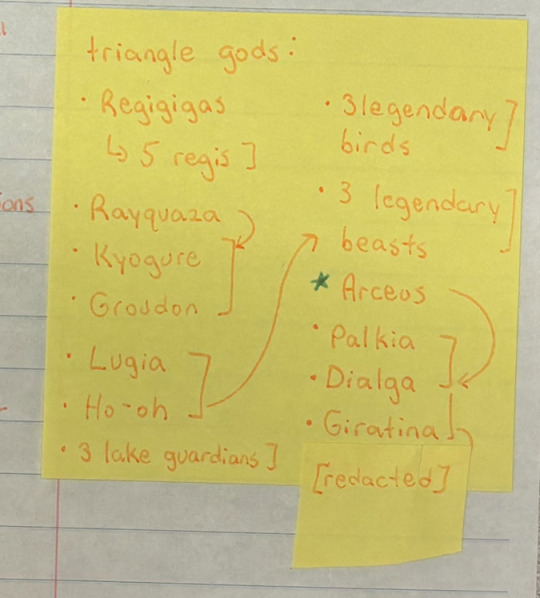 triangle gods:
• Regigigas
↳ 5 regis ]
• Rayquaza
• Kyogure
• Groudon
• Lugia
• Ho-oh
• 3 lake guardians ]
• 3 legendary
birds
• 3 legendary
beasts
★ Arceus
• Palkia
• Dialga
• Giratina
[redacted]
ons